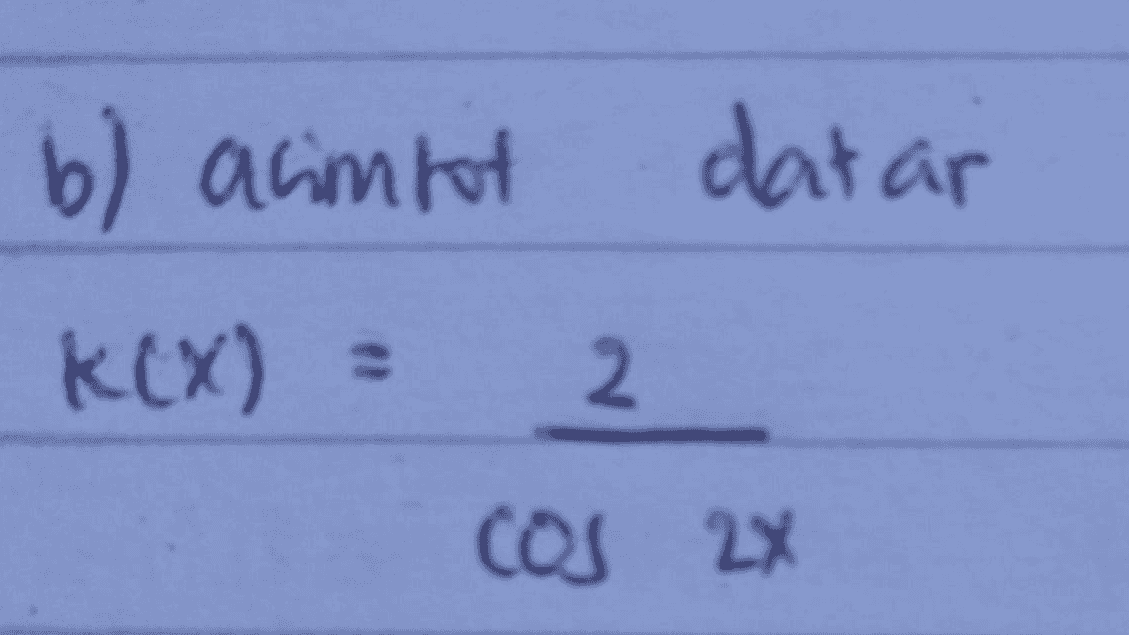 b) asimtot datar
k(x) = 2
cos 2x